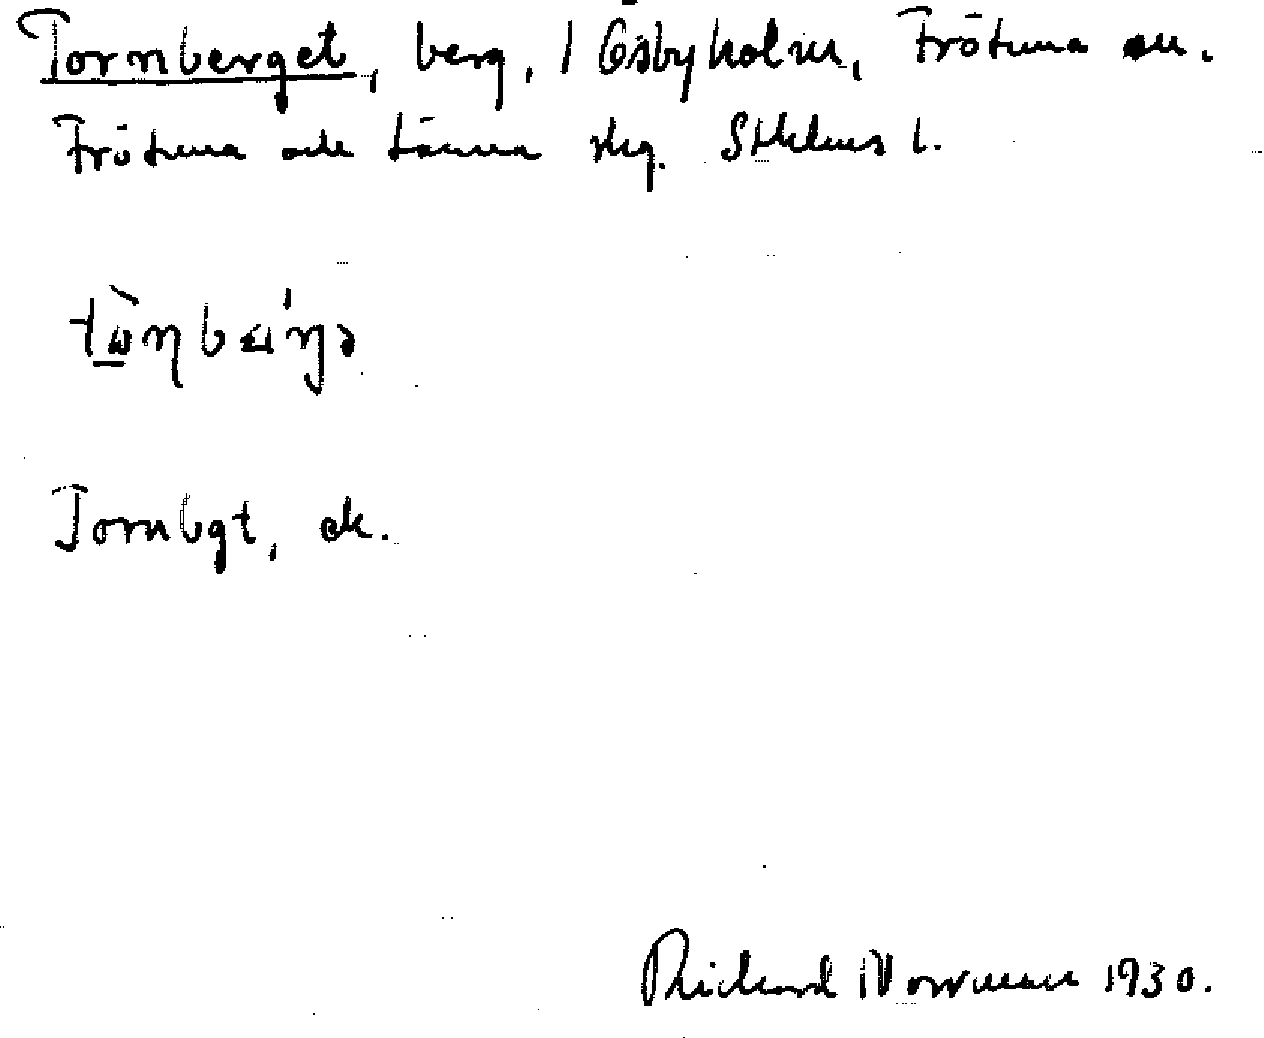 Tornberget, berg, 1 Ösbyholm, Frötuna sn.
Frötuna och Länna skg. Sthlms l.
Tornbgt, ek.
Rickard Norrman 1930.